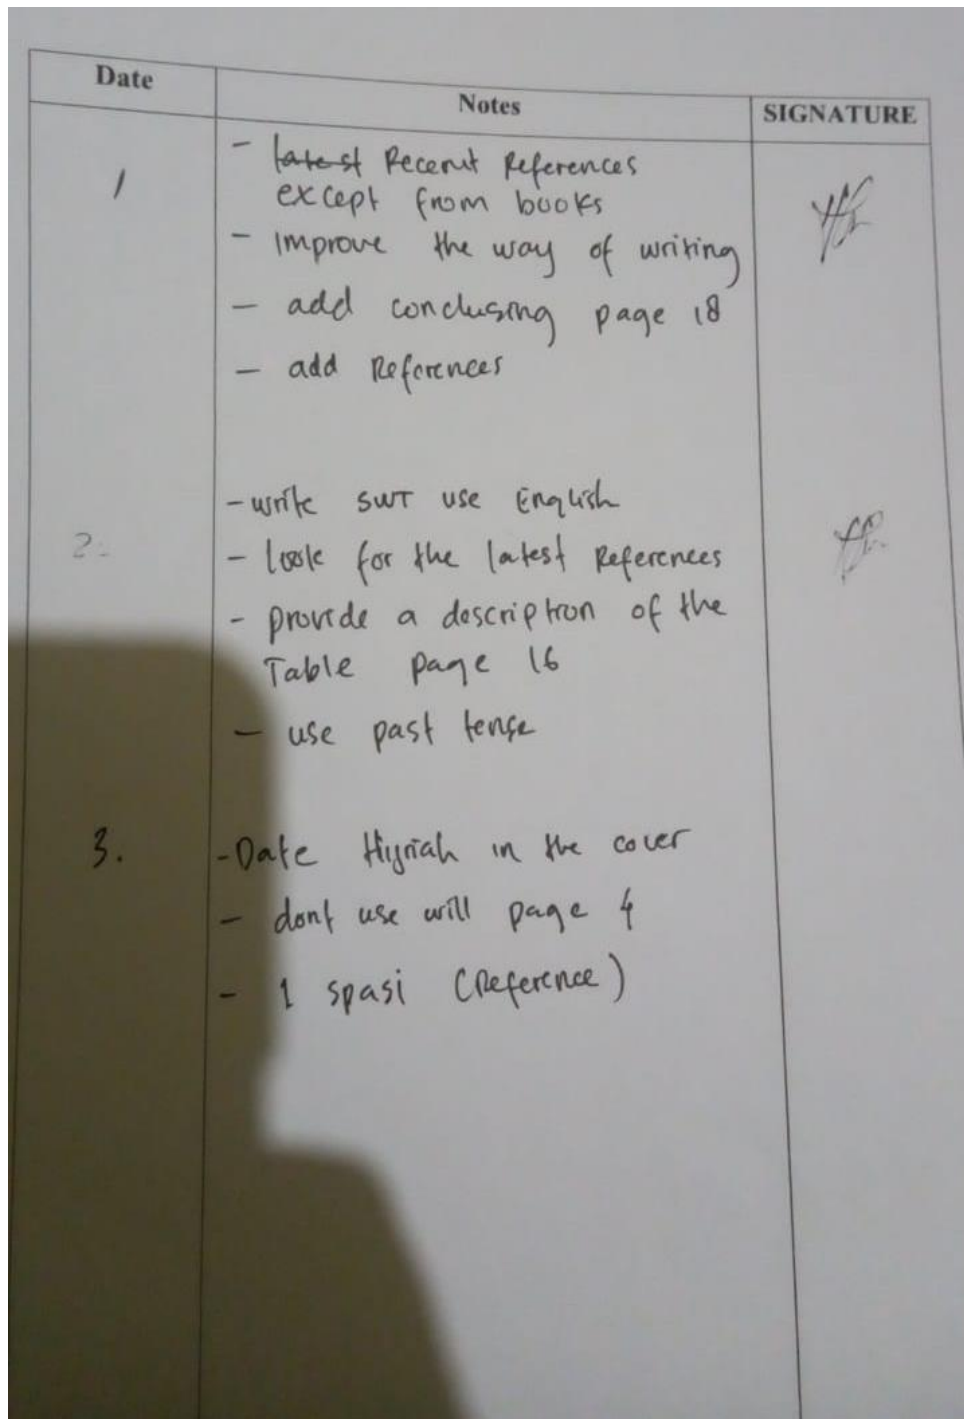 Date Notes SIGNATURE
1 - latest Recent References
except from books
- Improve the way of writing
- add conclusing page 18
- add References
- write SWT use English
2. - look for the latest References
- provide a description of the
Table page 16
- use past tense
3. - Date Hijriah in the cover
- dont use will page 4
- 1 spasi (Reference)